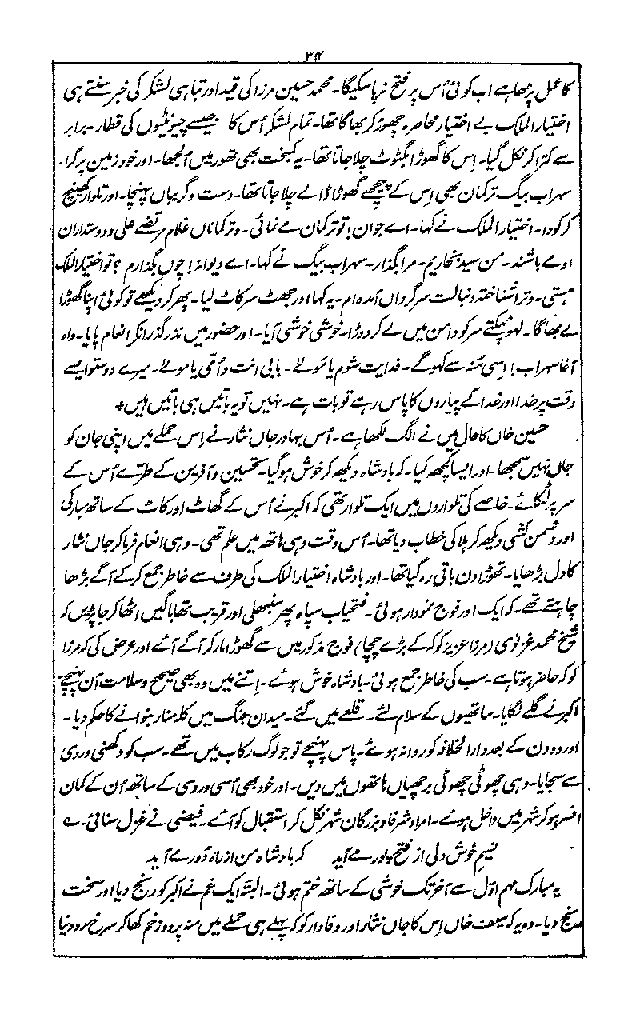 ۳۴
کا عمل پڑھا ہے اب کوئی اُس پر فتح نہ پا سکیگا۔ محمد حسین مرزا کی قید اور تباہی لشکر کی خبر سنتے ہی
اختیار الملک بے اختیار محاصرہ چھوڑ کر بھاگا تھا۔ تمام لشکر اُس کا جیسے چیونٹیوں کی قطار۔ برابر
سے کترا کر نکل گیا۔ اس کا گھوڑا بگٹٹ چلا جاتا تھا۔ یہ کمبخت بھی تھور میں اُلجھا۔ اور خود زمین پر گرا۔
سہراب بیگ ترکمان بھی اس کے پیچھے گھوڑا ڈالے چلا جاتا تھا۔ دست و گریباں پہنچا۔ اور تلوار کھینچ
کر کودا۔ اختیار الملک نے کہا۔ اے جوان! تو ترکمان مے نمائی۔ و ترکماناں غلام مرتضےٰ علی و دوستداران
اوے باشند۔ من سید بخاریم۔ مرا بگذار۔ سہراب بیگ نے کہا۔ اے دیوانہ! چوں بگذارم؟ تو اختیار الملک
ہستی۔ و ترا شناختہ دنبالت سرگرداں آمدہ ام۔ یہ کہا اور جھٹ سر کاٹ لیا۔ پھر کر دیکھے تو کوئی اپنا گھوڑا
لے بھاگا۔ لہو ٹپکتے سر کو دامن میں لے کر دوڑا۔ خوشی خوشی آیا۔ اور حضور میں نذر گذران کر انعام پایا۔ واہ
آغا سہراب! اسی منہ سے کہو گے۔ فدایت شوم یا مولےٰ۔ بابی انت و اُمّی یا مولےٰ۔ میرے دوستو ایسے
وقت پر خدا اور خدا کے پیاروں کا پاس رہے تو بات ہے۔ نہیں تو یہ باتیں ہی باتیں ہیں +
حسین خاں کا حال میں نے الگ لکھا ہے۔ اُس بہادر جاں نثار نے اس حملے میں اپنی جان کو
جان نہیں سمجھا۔ اور ایسا کچھ کیا۔ کہ بادشاہ دیکھ کر خوش ہو گیا۔ تحسین و آفرین کے طرے اُس کے
سر پر لٹکائے۔ خاصے کی تلواروں میں ایک تلوار تھی کہ اکبر نے اُس کے گھاٹ اور کاٹ کے ساتھ مبارکی
اور دشمن کشی دیکھ کر ہلاکی خطاب دیا تھا۔ اُس وقت وہی ہاتھ میں علم تھی۔ وہی انعام فرما کر جاں نثار
کا دل بڑھایا۔ تھوڑا دن باقی رہ گیا تھا۔ اور بادشاہ اختیار الملک کی طرف سے خاطر جمع کر کے آگے بڑھا
چاہتے تھے۔ کہ ایک اور فوج نمودار ہوئی۔ فتحیاب سپاہ پھر سنبھلی اور قریب تھا باگیں اٹھا کر جا پڑیں کہ
شیخ محمد غزنوی (مرزا عزیز کوکہ کے بڑے چچا) فوج مذکور میں سے گھوڑا مار کر آگے آئے اور عرض کی کہ مرزا
کوکہ حاضر ہوتا ہے۔ سب کی خاطر جمع ہوئی۔ بادشاہ خوش ہوئے۔ اتنے میں وہ بھی صحیح و سلامت آن پہنچے
اکبر نے گلے لگایا۔ ساتھیوں کے سلام لئے۔ قلعے میں گئے۔ میدان جنگ میں کلہ منار بنوانے کا حکم دیا۔
اور دو دن کے بعد دارالخلافہ کو روانہ ہوئے۔ پاس پہنچے تو جو لوگ رکاب میں تھے۔ سب کو دکھنی وردی
سے سجایا۔ وہی چھوٹی چھوٹی برچھیاں ہاتھوں میں دیں۔ اور خود بھی اُسی وردی کے ساتھ اُن کے کمان
افسر ہو کر شہر میں داخل ہوئے۔ امرا و شرفا و بزرگان شہر نکل کر استقبال کو آئے۔ فیضی نے غزل سنائی۔ ے
نسیم خوش دلی از فتح پور مے آید کہ بادشاہ من از راہ دُور مے آید
یہ مبارک مہم اوّل سے آخر تک خوشی کے ساتھ ختم ہوئی۔ البتہ ایک غم نے اکبر کو رنج دیا اور سخت
رنج دیا۔ وہ یہ کہ سیف خاں اس کا جاں نثار اور وفادار کوکہ پہلے ہی حملے میں منہ پر دو زخم کھا کر سرخ رو دنیا